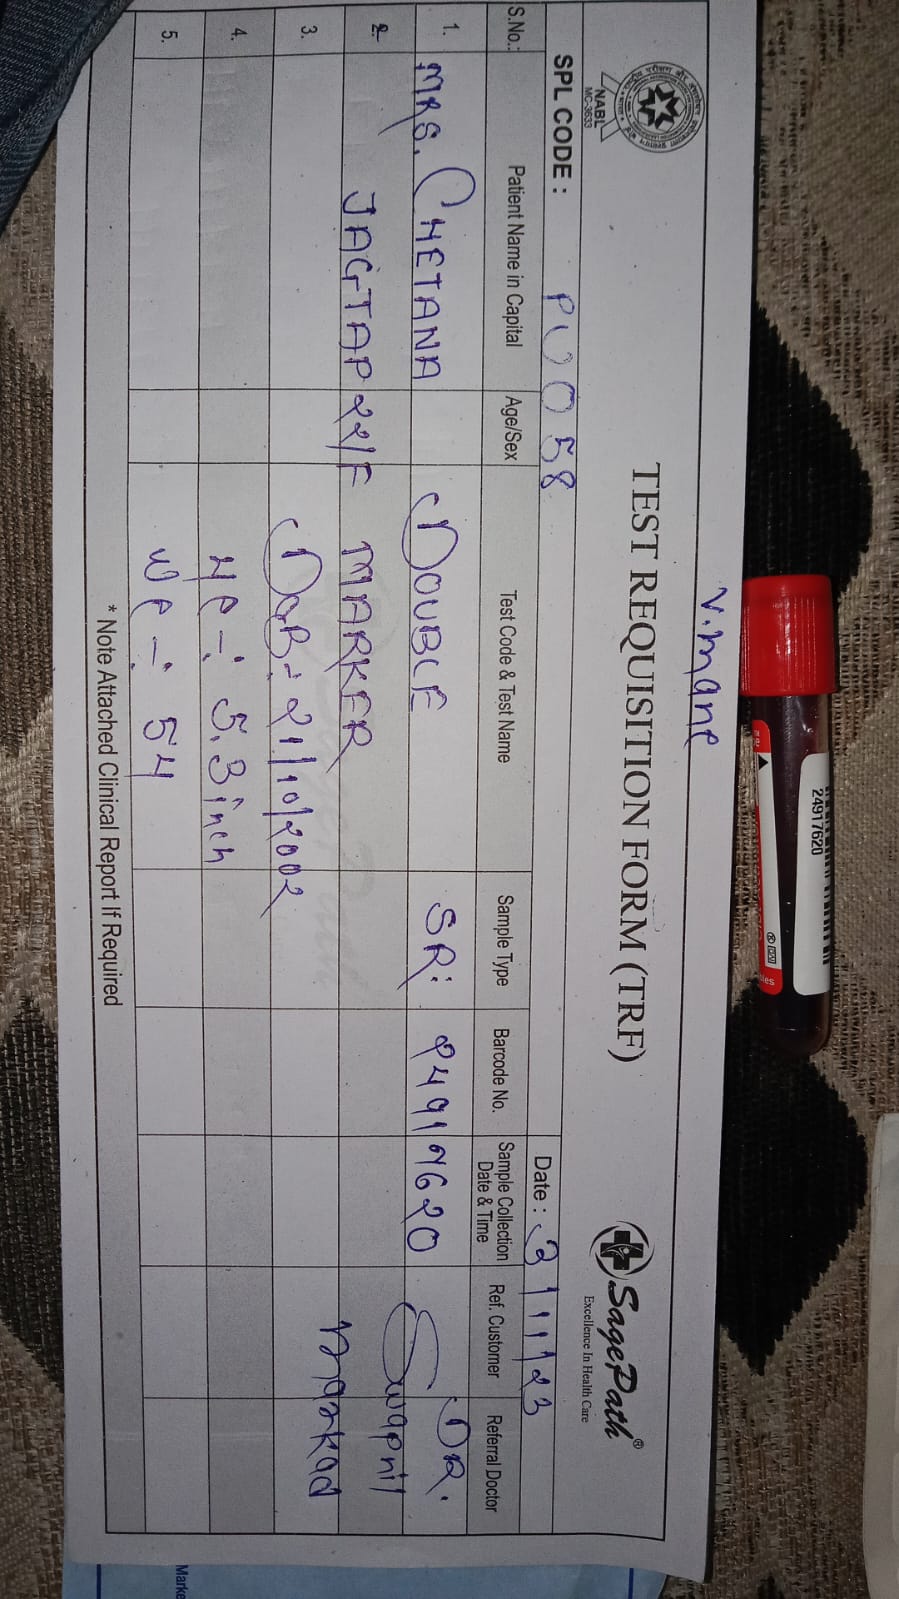 v.mane
NABL
MC-3633
TEST REQUISITION FORM (TRF)
SagePath®
Excellence In Health Care
SPL CODE : PU058
Date : 3/11/23
S.No.: Patient Name in Capital Age/Sex Test Code & Test Name Sample Type Barcode No. Sample Collection Date & Time Ref. Customer Referral Doctor
1. MRS. CHETANA DOUBLE SR: 24919620 DR.
2. JAGTAP 22/F MARKER Swapnil
3. DOB: 21/10/2002 markad
4. HP -: 5.3 inch
5. WP -: 54
* Note Attached Clinical Report If Required
24917620
Marke